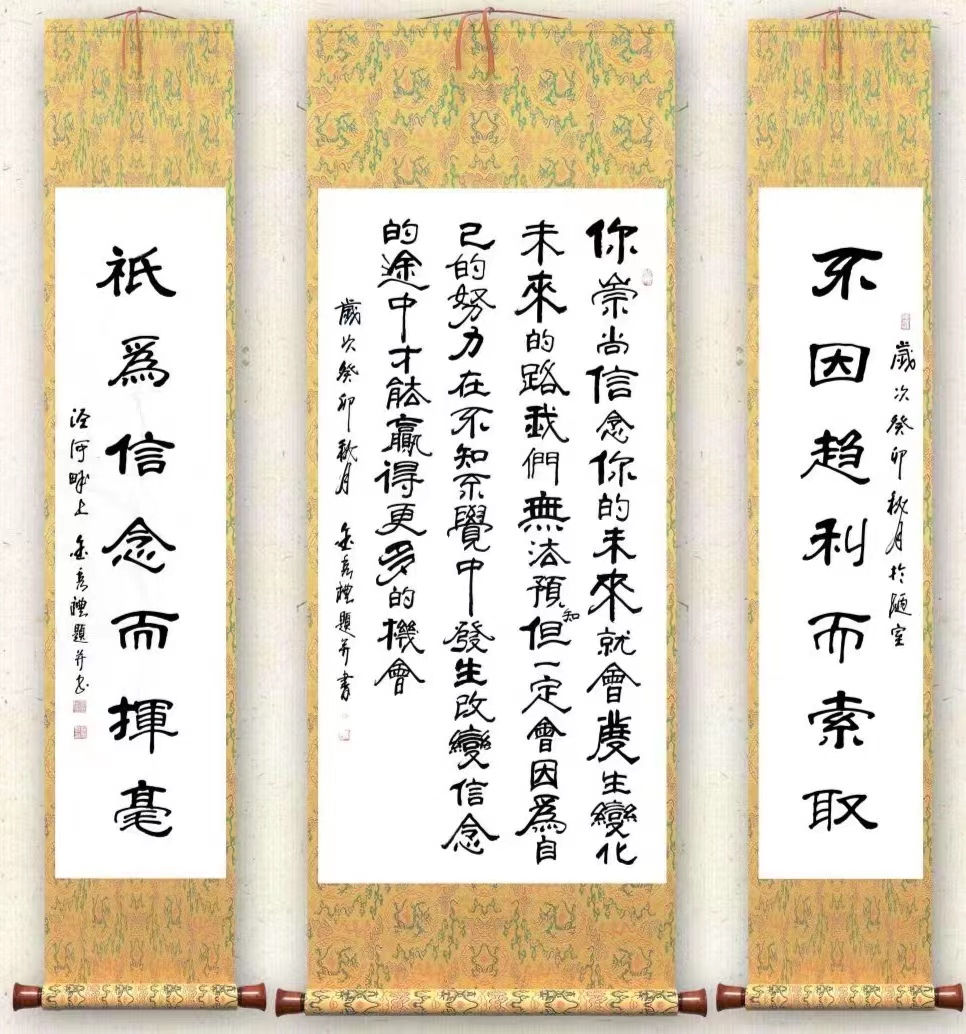 不因趋利而索取
歲次癸卯秋月於陋室
你崇尚信念你的未來就會發生變化
未來的路我們無法預知但一定會因爲自
己的努力在不知不覺中發生改變信念
的途中才能贏得更多的機會
歲次癸卯秋月 禮題并書
祇爲信念而揮毫
涇河畔上 禮題并書